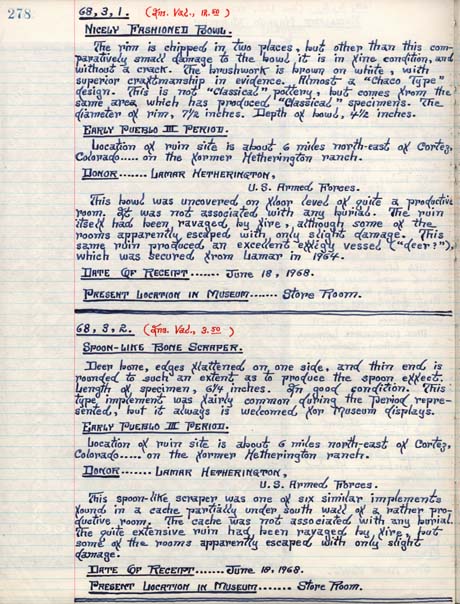 278
68,3,1. (Ins. Val., 12.50)
Nicely Fashioned Bowl.
The rim is chipped in two places, but other than this com-
paratively small damage to the bowl it is in fine condition, and
without a crack. The brushwork is brown on white, with
superior craftmanship in evidence. Almost a "Chaco Type"
design. This is not "Classical" pottery, but comes from the
same area which has produced "Classical" specimens. The
diameter of rim, 7½ inches. Depth of bowl, 4½ inches.
Early Pueblo III Period.
Location of ruin site is about 6 miles north-east of Cortez,
Colorado..... on the former Hetherington ranch.
Donor ....... Lamar Hetherington,
U.S. Armed Forces.
This bowl was uncovered on floor level of quite a productive
room. It was not associated with any burial. The ruin
itself had been, ravaged, by fire, although some of the
rooms apparently escaped with only slight damage. This
same ruin produced an excellent effigy vessel ("deer?"),
which was secured from Lamar in 1964.
Date Of Receipt ....... June 18, 1968.
Present Location in Museum ....... Store Room.
68,3,2. (Ins. Val., 3.50)
Spoon-like Bone Scraper.
Deer bone, edges flattened on one side, and thin end is
rounded to such an extent as to produce the spoon effect.
Length of specimen, 6¼ inches. In good condition. This
type implement was fairly common during the Period repre-
sented, but it always is welcomed for Museum displays.
Early Pueblo III Period.
Location of ruin site is about 6 miles north-east of Cortez,
Colorado..... on the former Hetherington ranch.
Donor ....... Lamar Hetherington,
U.S. Armed Forces.
This spoon-like scraper was one of six similar implements
found in a cache partially under south wall of a rather pro-
ductive room. The cache was not associated with any burial.
The quite extensive ruin had been ravaged by fire, but
some of the rooms apparently escaped with only slight
damage.
Date Of Receipt ....... June 18, 1968.
Present Location in Museum ....... Store Room.